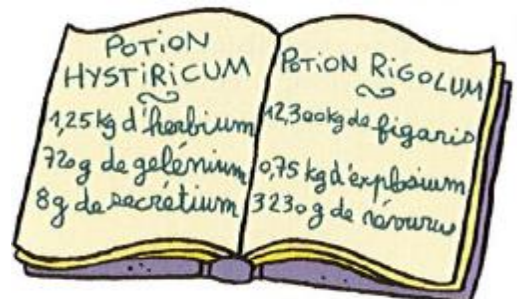 POTION
HYSTIRICUM
1,25 kg d'herbium
720 g de gelénium
8 g de secrétium
POTION RIGOLUM
12,300 kg de figaris
0,75 kg d'explosium
3230 g de